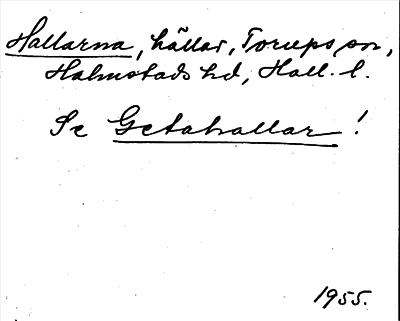 Hallarna, hällar, Torups sn,
Halmstads hd, Hall. l.
Se Getahallar !
1955.